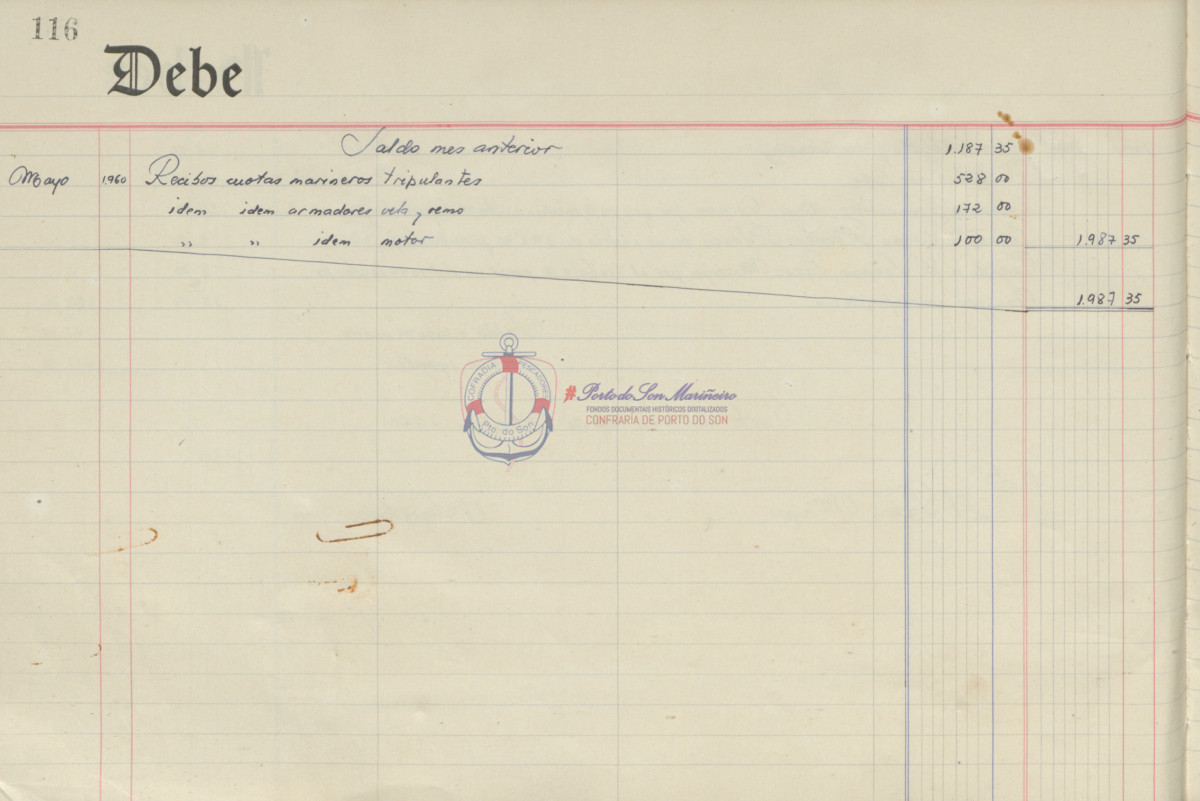 116
Debe
Saldo mes anterior 1.187 35
Mayo 1.960 Recibos cuotas marineros tripulantes 528 00
idem idem armadores vela y remo 172 00
" " idem motor 100 00 1.987 35
1.987 35
COFRADIA PESCADORES
Pto. do Son
#Porto do Son Mariñeiro
FONDOS DOCUMENTAIS HISTÓRICOS DIGITALIZADOS
CONFRARÍA DE PORTO DO SON